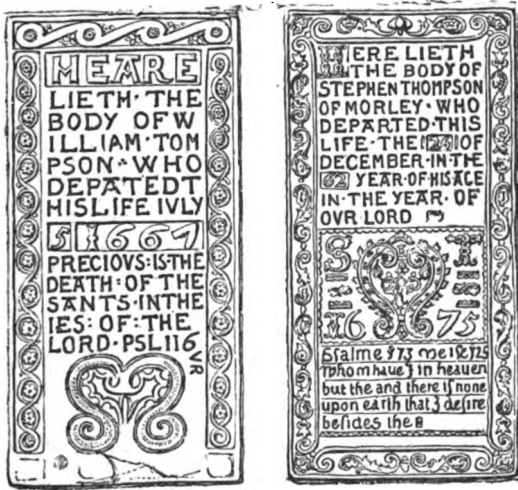 HEARE
LIETH·THE
BODY OF W
ILLIAM·TOM
PSON·WHO
DEPATEDT
HISLIFE IVLY
5 1667
PRECIOVS:IS·THE
DEATH:OF·THE
SANTS·INTHE
IES:OF:THE
LORD·PSL116
VR
HERE LIETH
THE BODY OF
STEPHEN THOMPSON
OF MORLEY·WHO
DEPARTED·THIS
LIFE·THE OF
DECEMBER·IN·THE
62 YEAR·OF·HIS AGE
IN·THE YEAR·OF
OVR LORD
S
1675
psalme 73
whom haue in heauen
but the and there is none
upon earth that desire
besides the